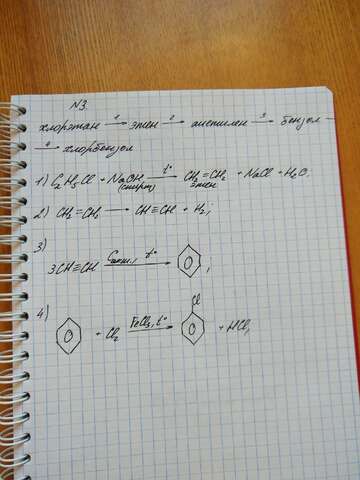 N3.
хлорэтан —1→ этен —2→ ацетилен —3→ бензол —
—4→ хлорбензол
1) C₂H₅Cl + NaOH (спирт) —t°→ CH₂=CH₂ + NaCl + H₂O;
этен
2) CH₂=CH₂ → CH≡CH + H₂;
3)
3CH≡CH —Cакт., t°→ ;
Cl
4)
+ Cl₂ —FeCl₃, t°→ + HCl,